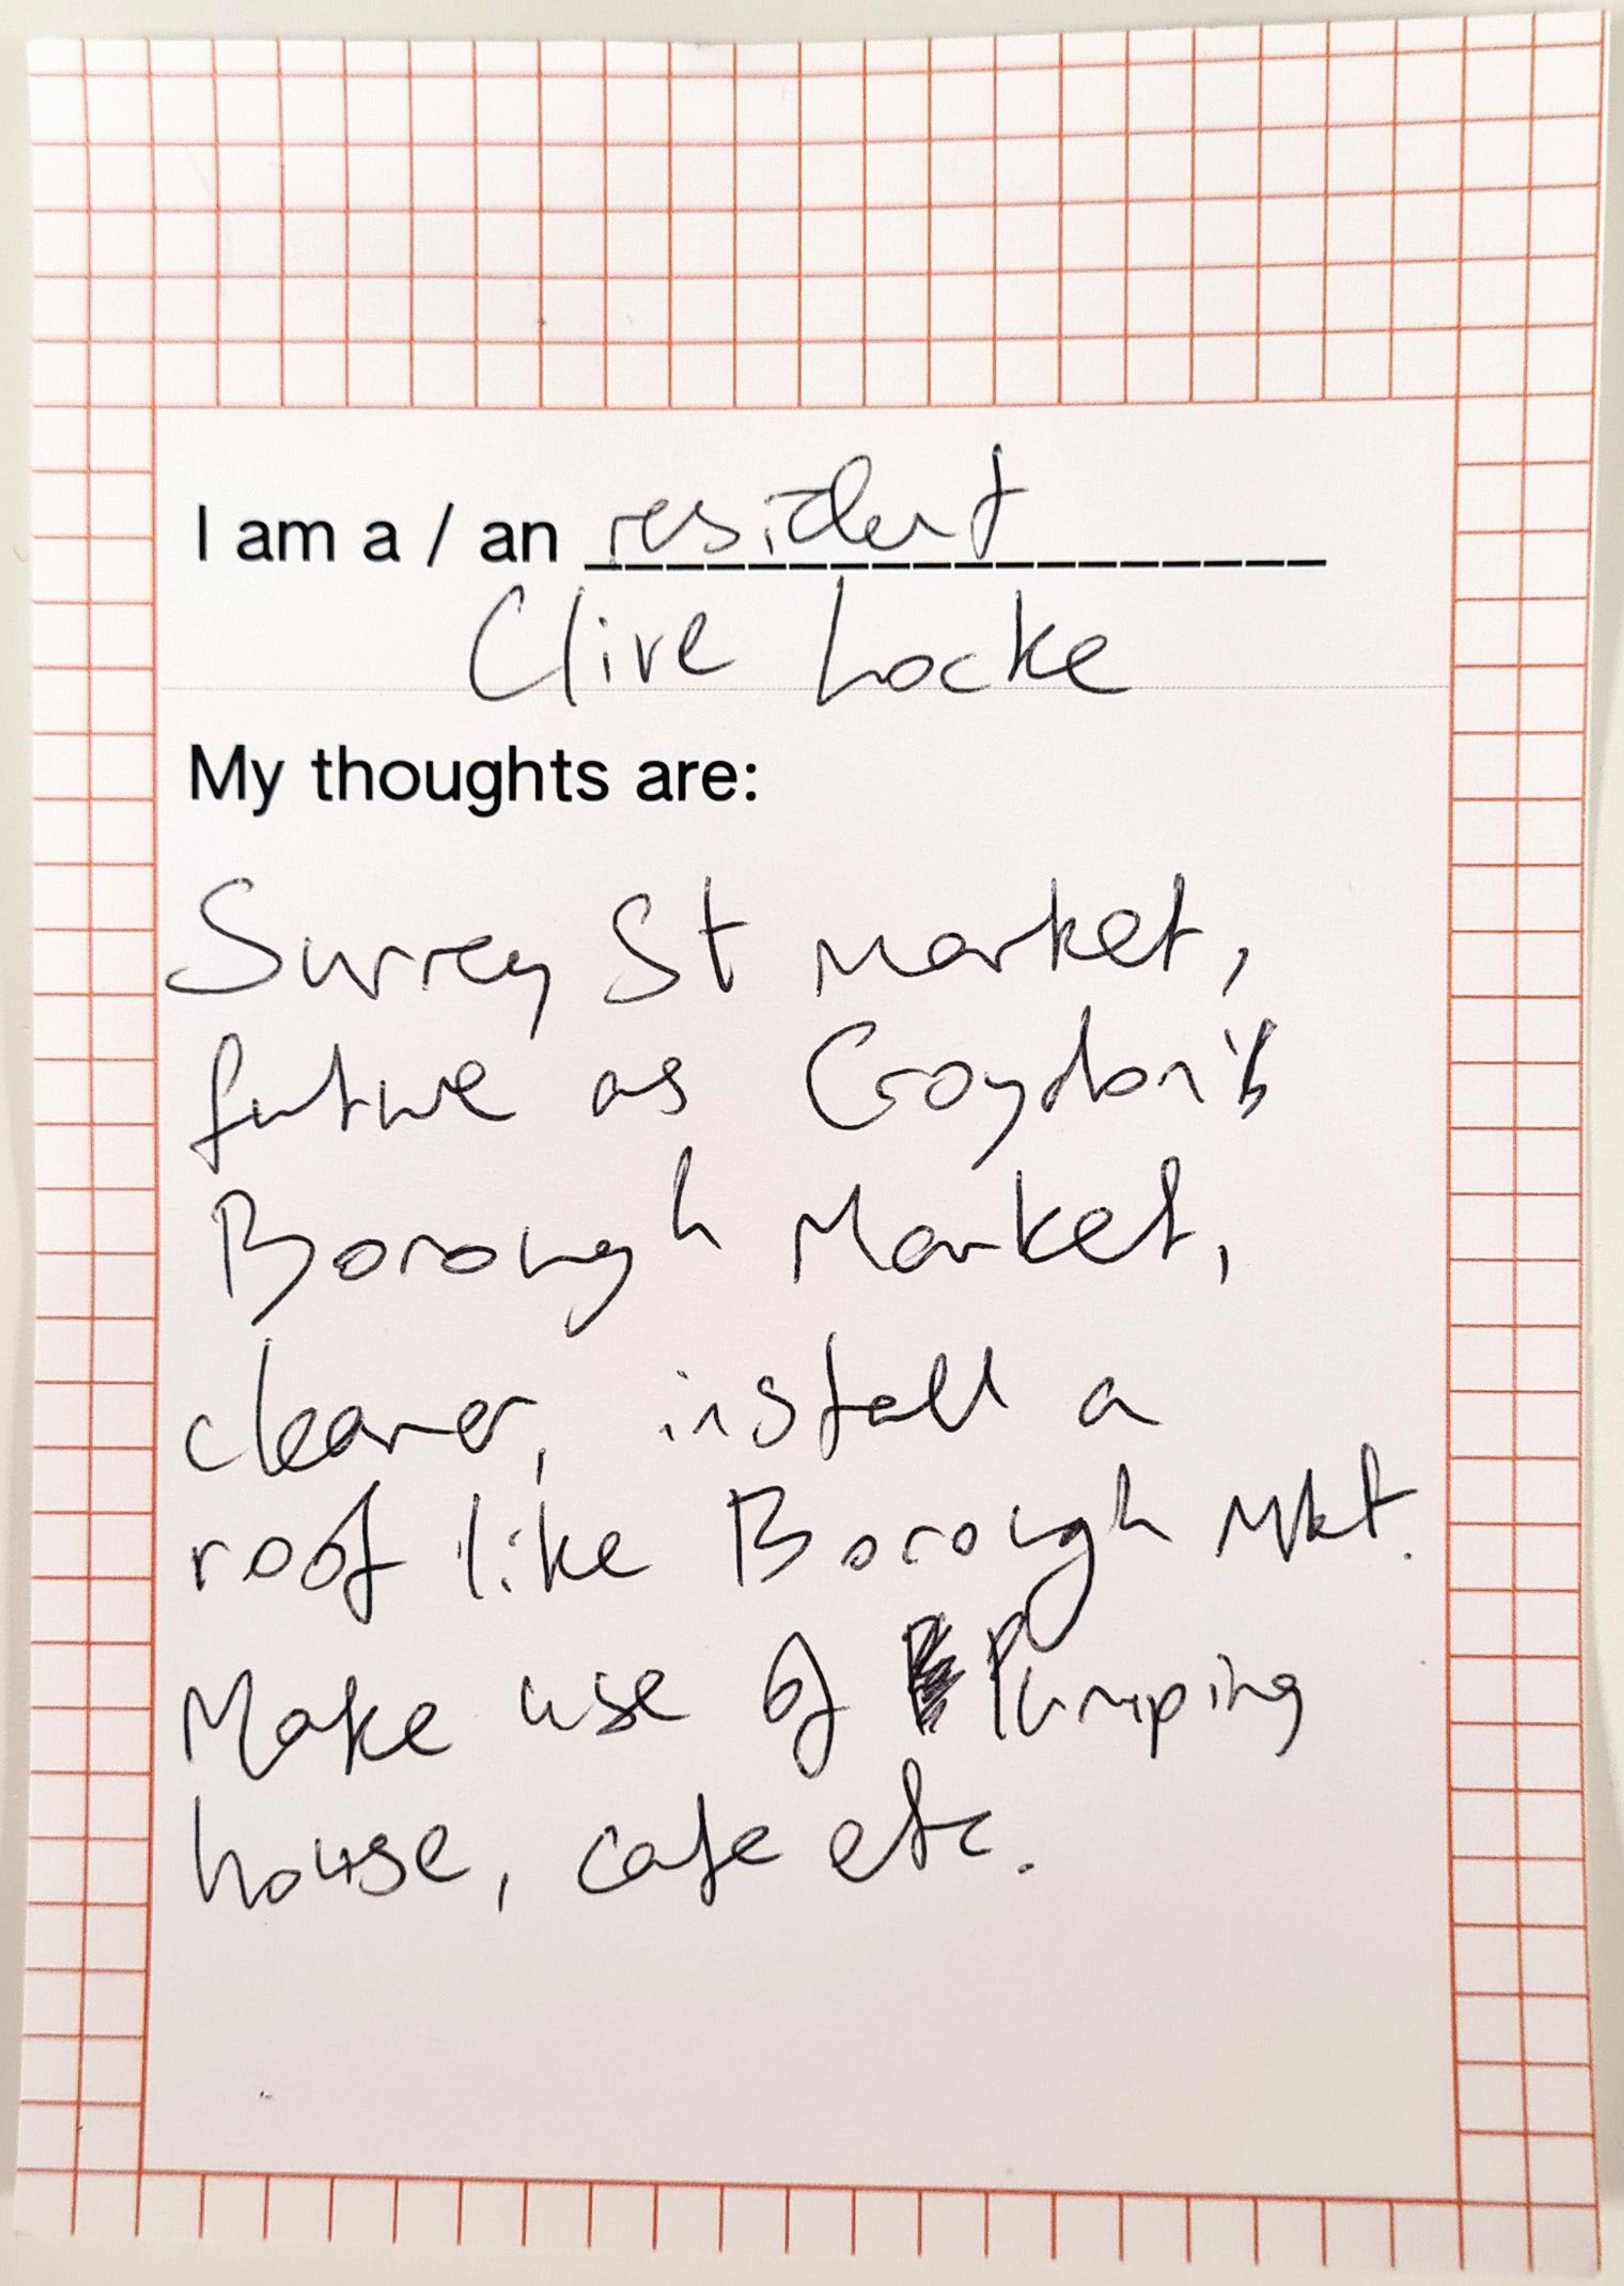 I am a / an resident
Clive Locke
My thoughts are:
Surrey St Market,
future as Croydon's
Borough Market,
cleaner, install a
roof like Borough Mkt.
Make use of Pumping
house, cafe etc.